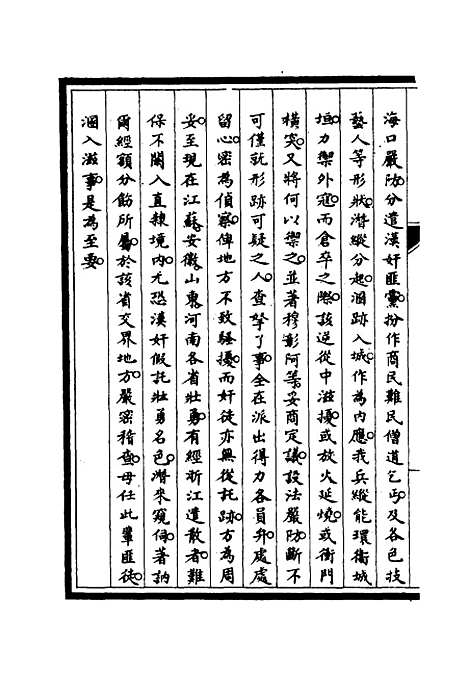 海口嚴防。分遣漢奸匪黨。扮作商民難民僧道乞丐。及各色技
藝人等形狀。潛縱分起。溷跡入城。作為內應。我兵縱能環衛城
垣。力禦外寇。而倉卒之際。該逆從中滋擾。或放火延燒。或衝門
橫突。又將何以禦之。並著穆彰阿等。妥商定議。設法嚴防。斷不
可僅就形跡可疑之人。查拏了事。全在派出得力各員弁。處處
留心。密為偵察。俾地方不致騷擾。而奸徒亦無從託跡。方為周
妥。至現在江蘇。安徽。山東。河南各省壯勇。有經浙江遣散者。難
保不闌入直隸境內。尤恐漢奸假托壯勇名色。潛來窺伺。著訥
爾經額分飭所屬。於該省交界地方。嚴密稽查。毋任此輩匪徒。
溷入滋事。是為至要。